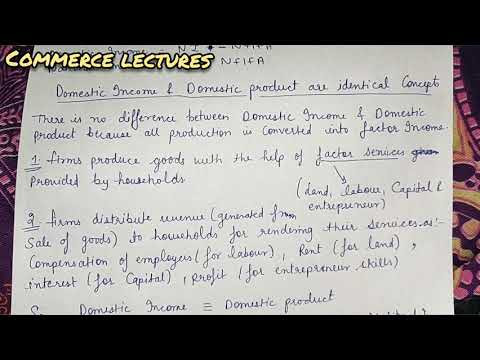 N I - NFIFA
COMMERCE LECTURES
NFIFA
Domestic Income & Domestic product are identical Concepts
There is no difference between Domestic Income & Domestic
product because all production is converted into factor Income.
1. firms produce goods with the help of factor services
Provided by households
(land, labour, Capital &
entrepreneur)
2. firms distribute revenue (generated from
Sale of goods) to households for rendering their services.as:-
Compensation of employees (for labour), Rent (for land),
interest (for Capital), Profit (for entrepreneur skills)
So Domestic Income ≡ Domestic product